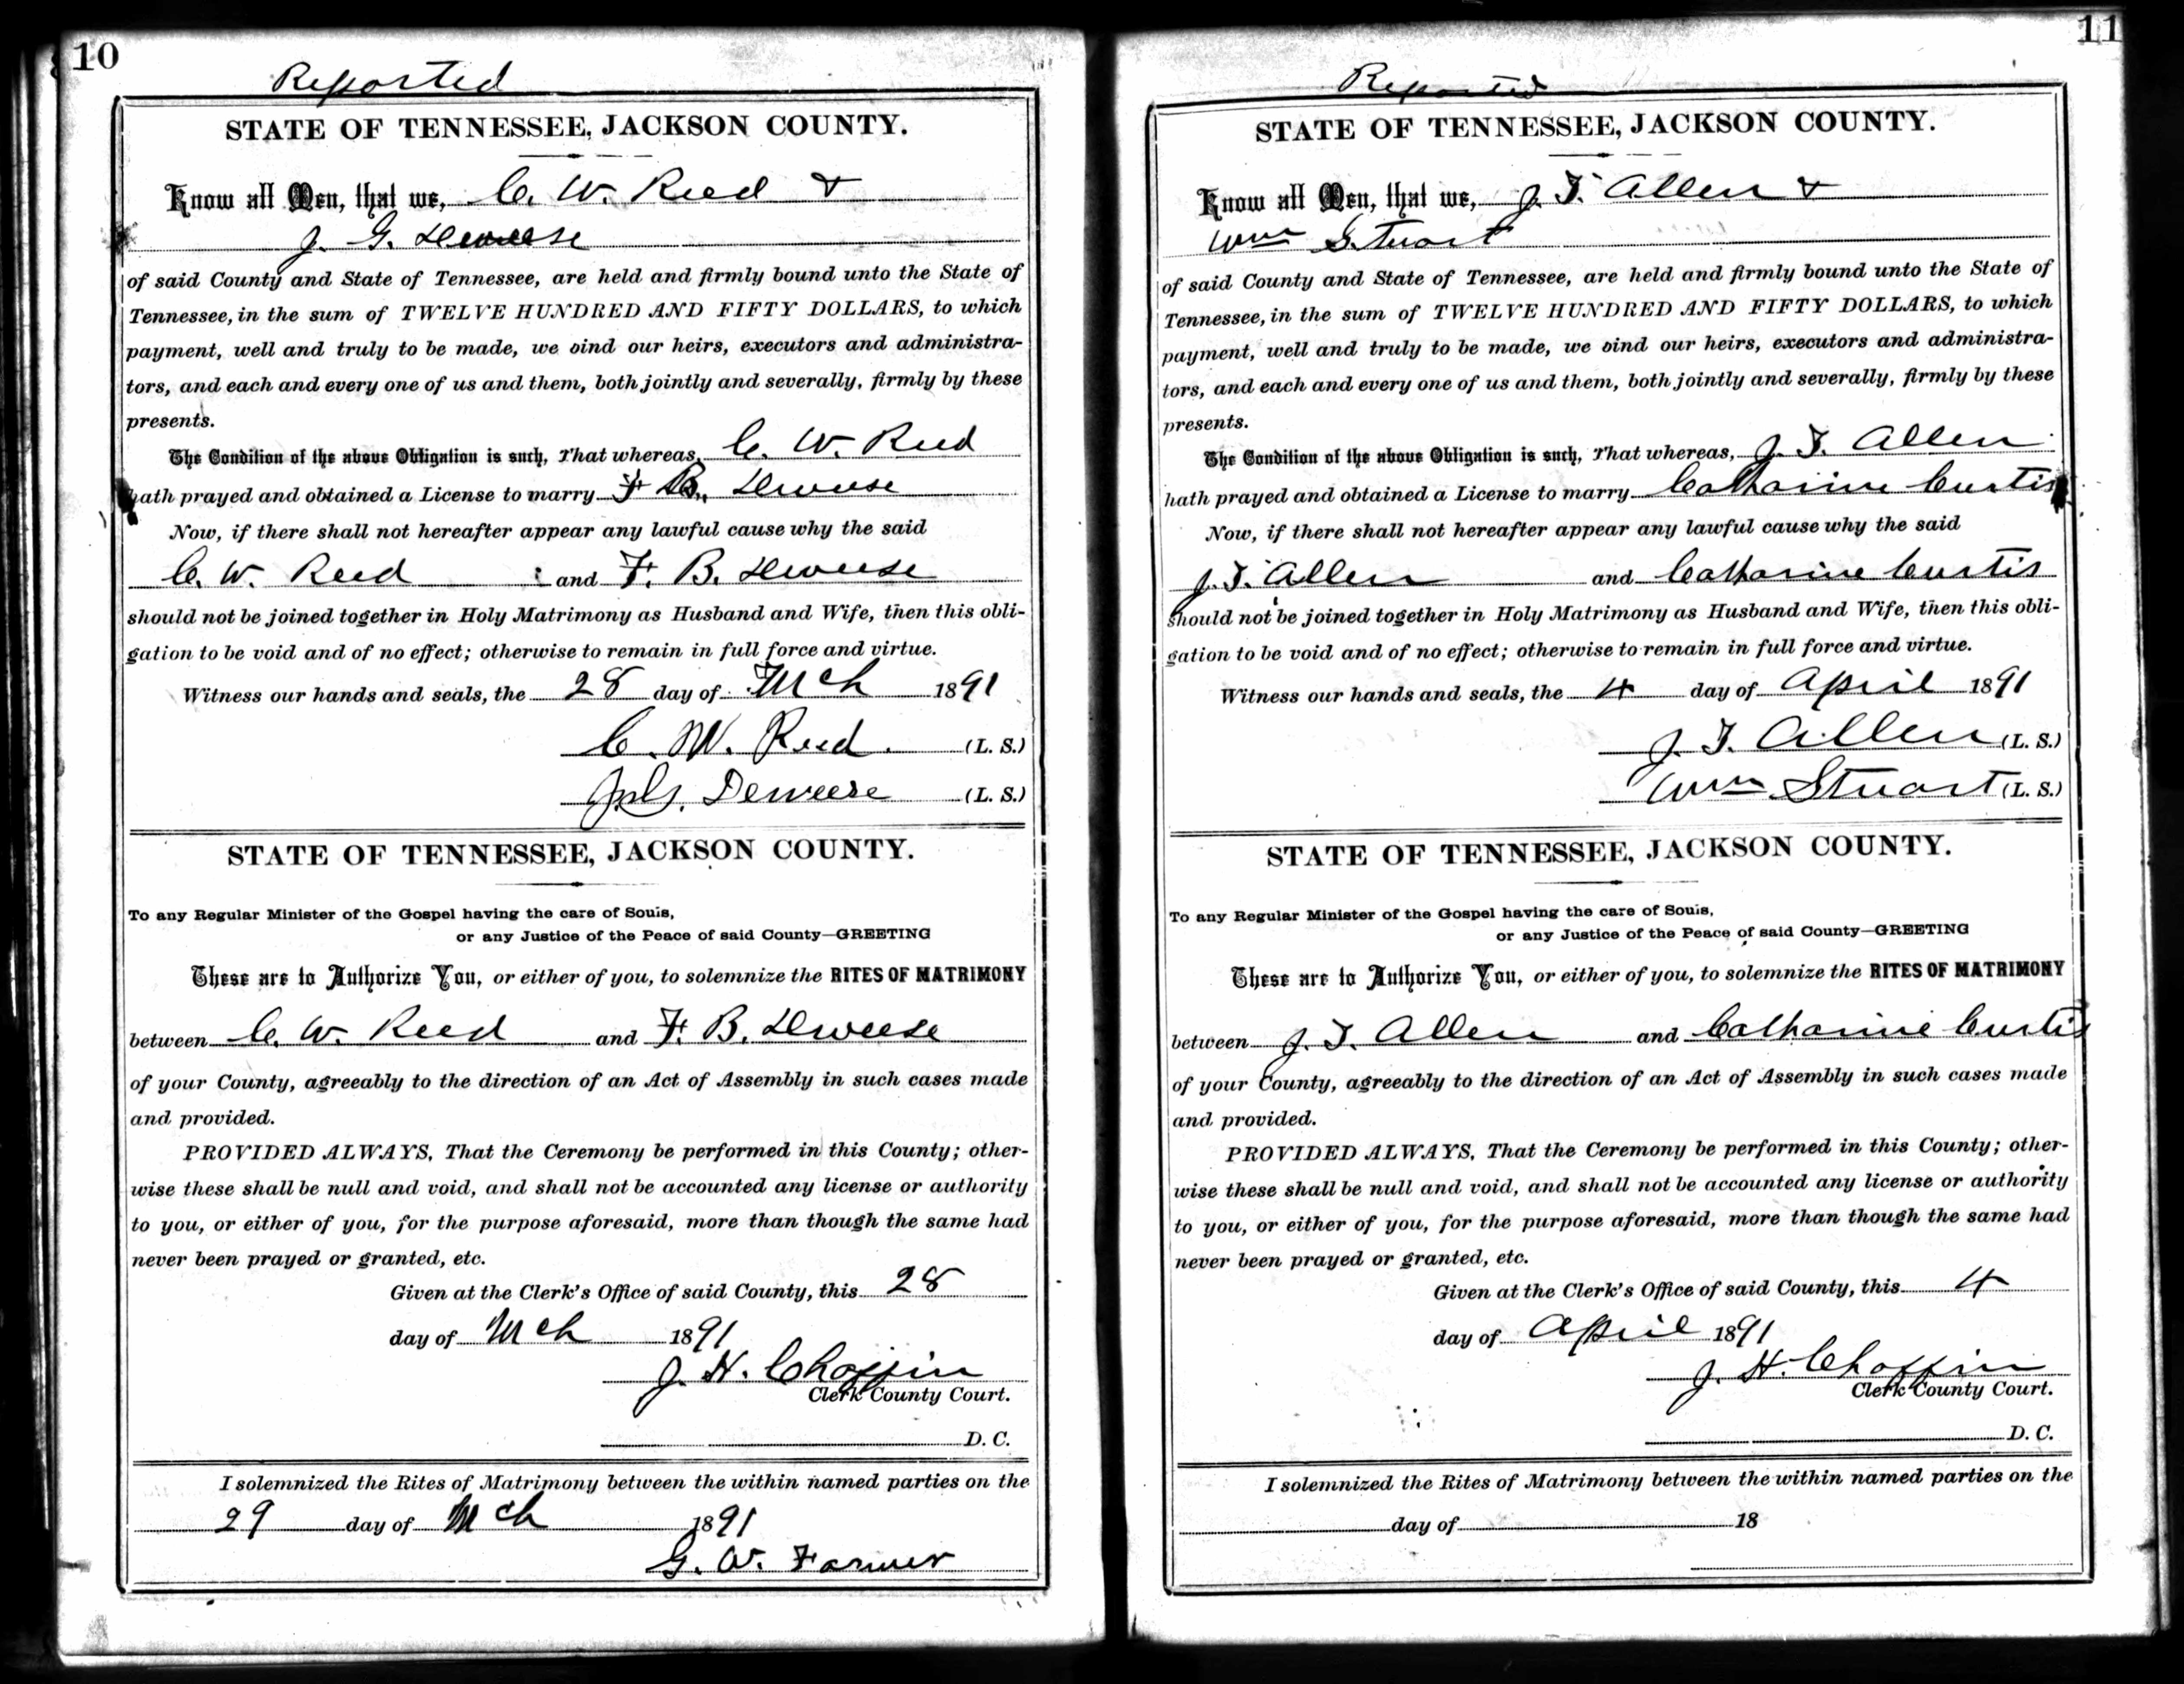 10
Reported
STATE OF TENNESSEE, JACKSON COUNTY.
Know all Men, that we, C. W. Reed &
J. G. Deweese
of said County and State of Tennessee, are held and firmly bound unto the State of
Tennessee, in the sum of TWELVE HUNDRED AND FIFTY DOLLARS, to which
payment, well and truly to be made, we bind our heirs, executors and administra-
tors, and each and every one of us and them, both jointly and severally, firmly by these
presents.
The Condition of the above Obligation is such, That whereas, C. W. Reed
hath prayed and obtained a License to marry F. B. Deweese
Now, if there shall not hereafter appear any lawful cause why the said
C. W. Reed and F. B. Deweese
should not be joined together in Holy Matrimony as Husband and Wife, then this obli-
gation to be void and of no effect; otherwise to remain in full force and virtue.
Witness our hands and seals, the 28 day of Mch 1891
C. W. Reed. (L. S.)
Deweese (L. S.)
STATE OF TENNESSEE, JACKSON COUNTY.
To any Regular Minister of the Gospel having the care of Souls,
or any Justice of the Peace of said County—GREETING
These are to Authorize You, or either of you, to solemnize the RITES OF MATRIMONY
between C. W. Reed and F. B. Deweese
of your County, agreeably to the direction of an Act of Assembly in such cases made
and provided.
PROVIDED ALWAYS, That the Ceremony be performed in this County; other-
wise these shall be null and void, and shall not be accounted any license or authority
to you, or either of you, for the purpose aforesaid, more than though the same had
never been prayed or granted, etc.
Given at the Clerk's Office of said County, this 28
day of Mch 1891
J. H. Chaffin
Clerk County Court.
D. C.
I solemnized the Rites of Matrimony between the within named parties on the
29 day of Mch 1891
G. W. Farmer
11
Reported
STATE OF TENNESSEE, JACKSON COUNTY.
Know all Men, that we, J. T. Allen &
Wm Stuart
of said County and State of Tennessee, are held and firmly bound unto the State of
Tennessee, in the sum of TWELVE HUNDRED AND FIFTY DOLLARS, to which
payment, well and truly to be made, we bind our heirs, executors and administra-
tors, and each and every one of us and them, both jointly and severally, firmly by these
presents.
The Condition of the above Obligation is such, That whereas, J. T. Allen
hath prayed and obtained a License to marry Catharine Curtis
Now, if there shall not hereafter appear any lawful cause why the said
J. T. Allen and Catharine Curtis
should not be joined together in Holy Matrimony as Husband and Wife, then this obli-
gation to be void and of no effect; otherwise to remain in full force and virtue.
Witness our hands and seals, the 4 day of April 1891
J. T. Allen (L. S.)
Wm Stuart (L. S.)
STATE OF TENNESSEE, JACKSON COUNTY.
To any Regular Minister of the Gospel having the care of Souls,
or any Justice of the Peace of said County—GREETING
These are to Authorize You, or either of you, to solemnize the RITES OF MATRIMONY
between J. T. Allen and Catharine Curtis
of your County, agreeably to the direction of an Act of Assembly in such cases made
and provided.
PROVIDED ALWAYS, That the Ceremony be performed in this County; other-
wise these shall be null and void, and shall not be accounted any license or authority
to you, or either of you, for the purpose aforesaid, more than though the same had
never been prayed or granted, etc.
Given at the Clerk's Office of said County, this 4
day of April 1891
J. H. Chaffin
Clerk County Court.
D. C.
I solemnized the Rites of Matrimony between the within named parties on the
day of 18